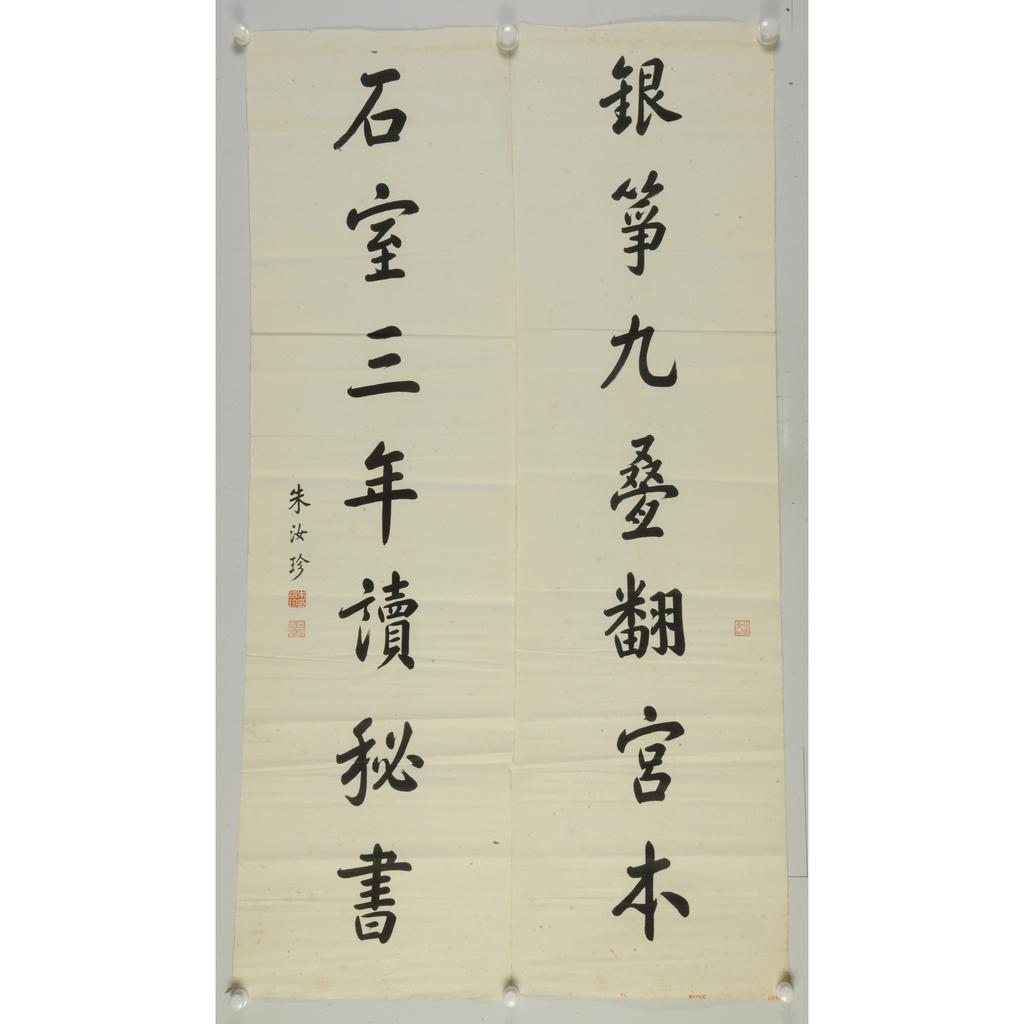 銀箏九叠翻宮本
石室三年讀秘書
朱汝珍